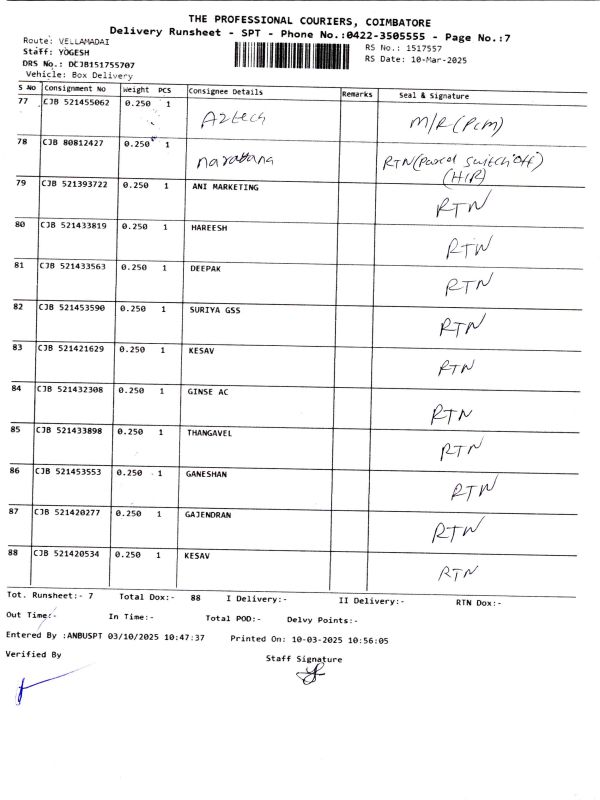 THE PROFESSIONAL COURIERS, COIMBATORE
Delivery Runsheet - SPT - Phone No.:0422-3505555 - Page No.:7
Route: VELLAMADAI
RS No.: 1517557
Staff: YOGESH
RS Date: 10-Mar-2025
DRS No.: DCJB151755707
Vehicle: Box Delivery
S No Consignment No Weight PCS Consignee Details Remarks Seal & Signature
77 CJB 521455062 0.250 1 Aztech M/R (PCM)
78 CJB 80812427 0.250 1 RTN (Parcel Switch off)
(H/R)
79 CJB 521393722 0.250 1 ANI MARKETING RTN
80 CJB 521433819 0.250 1 HAREESH RTN
81 CJB 521433563 0.250 1 DEEPAK RTN
82 CJB 521453590 0.250 1 SURIYA GSS RTN
83 CJB 521421629 0.250 1 KESAV RTN
84 CJB 521432308 0.250 1 GINSE AC RTN
85 CJB 521433898 0.250 1 THANGAVEL RTN
86 CJB 521453553 0.250 1 GANESHAN RTN
87 CJB 521420277 0.250 1 GAJENDRAN RTN
88 CJB 521420534 0.250 1 KESAV RTN
Tot. Runsheet:- 7 Total Dox:- 88 I Delivery:- II Delivery:- RTN Dox:-
Out Time:- In Time:- Total POD:- Delvy Points:-
Entered By :ANBUSPT 03/10/2025 10:47:37 Printed On: 10-03-2025 10:56:05
Verified By Staff Signature